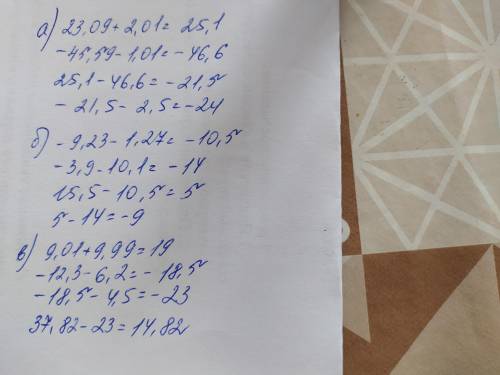 а) 23,09+2,01= 25,1
-45,59-1,01=-46,6
25,1-46,6=-21,5
-21,5-2,5=-24
б) -9,23-1,27=-10,5
-3,9-10,1=-14
15,5-10,5=5
5-14=-9
в) 9,01+9,99=19
-12,3-6,2=-18,5
-18,5-4,5=-23
37,82-23=14,82